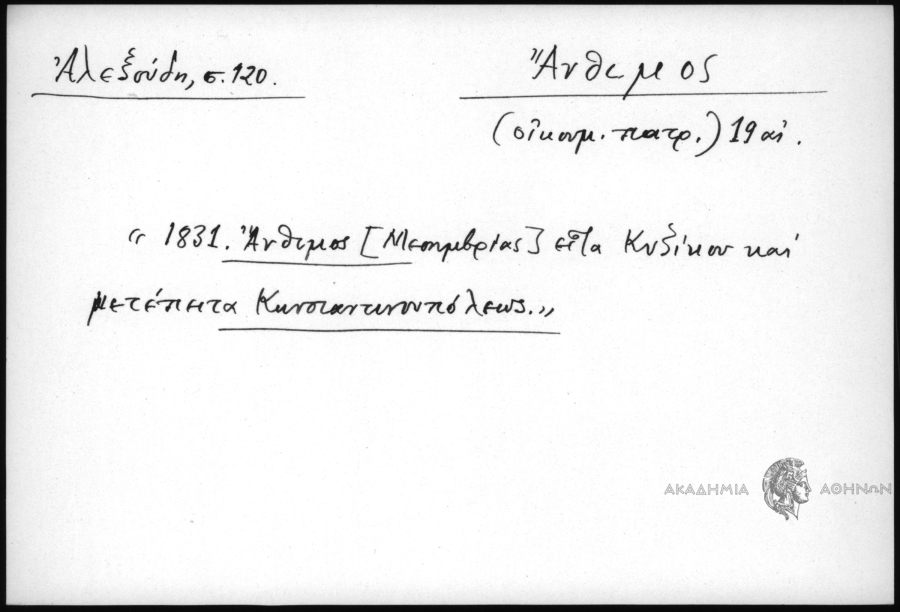 Ἀλεξούδη, σ. 120.
Ἄνθιμος
(οἰκουμ. πατρ.) 19 αἰ.
« 1831. Ἄνθιμος [Μεσημβρίας] εἶτα Κυζίκου καὶ
μετέπειτα Κωνσταντινουπόλεως.»
ΑΚΑΔΗΜΙΑ ΑΘΗΝΩΝ